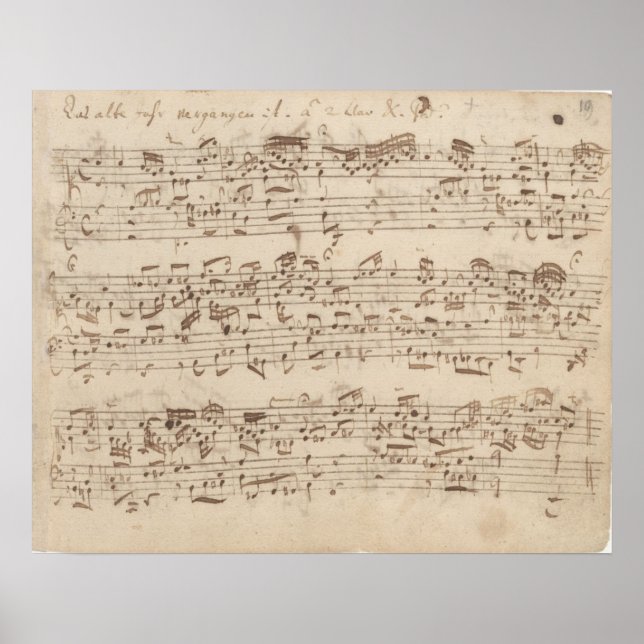 Das alte Jahr vergangen ist. à 2 Clav & Ped. 19